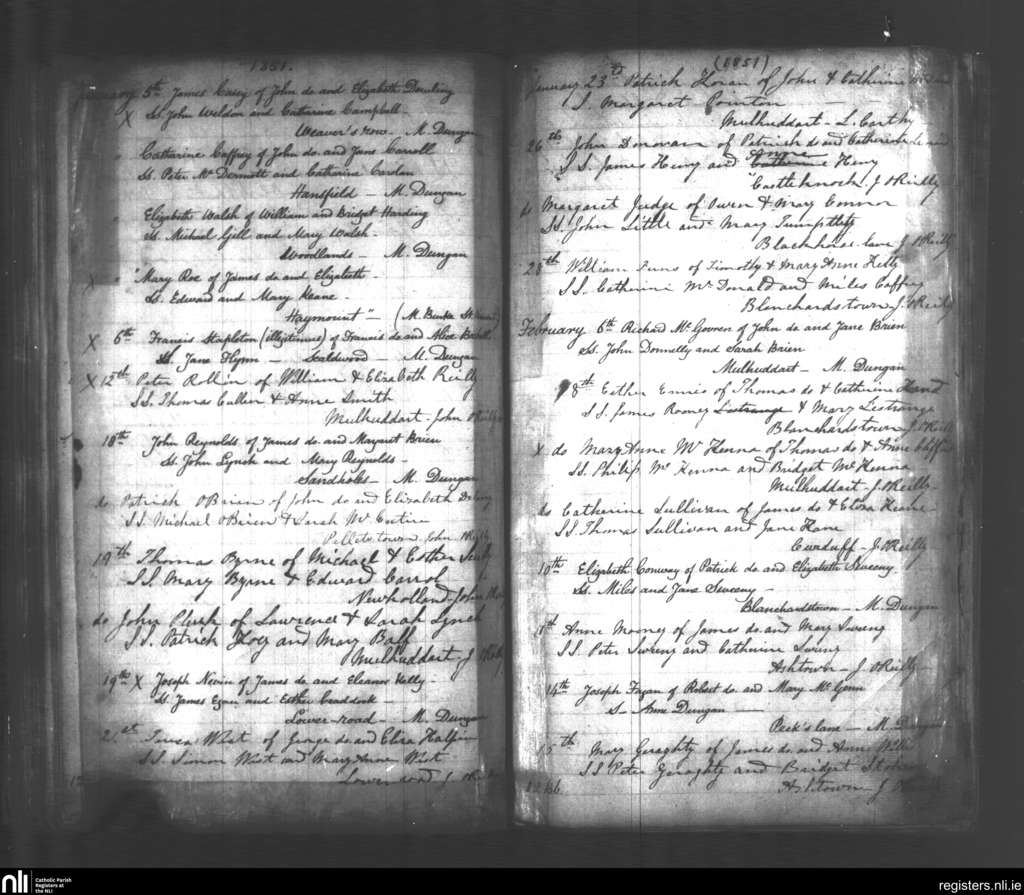 1851.
January 5th James Casey of John do and Elizabeth Dowling
X Ss. John Weldon and Catharine Campbell -
Weaver's row. - M. Dungan
" Catharine Caffrey of John do. and Jane Carroll
Ss. Peter McDermott and Catharine Carolan
Handfield - M. Dungan
" Elizabeth Walsh of William and Bridget Harding
Ss. Michael Gill and Mary Walsh -
Woodlands - M. Dungan
X " Mary Roe of James do. and Elizabeth -
Ss. Edward and Mary Keane -
Haymount" - (M. Burke
X 6th Francis Stapleton (illegitimus) of Francis do and Alice
Ss. Jane Flynn - Scaldwood - M. Dungan
X 12th Peter of William & Elizabeth Reilly
SS. Thomas Cullen & Anne Smith
Mulhuddart - John
18th John Reynolds of James do. and Margaret Brien
Ss. John Lynch and Mary Reynolds -
Sandholes - M. Dungan
do Patrick OBrien of John do and Elizabeth
SS Michael OBrien & Sarah
Pelletstown John
19th Thomas Byrne of Michael & Esther
SS. Mary Byrne & Edward Carrol
Newholland - John
do John of Lawrence & Sarah Lynch
SS. Patrick Hoey and Mary Ball
Mulhuddart - J
19th X Joseph Nevin of James do. and Eleanor Kelly -
Ss. James Egan and Esther Craddock -
Lower-road - M. Dungan
21st West of George do and Eliza Halpin
SS. Simon West and Mary Anne West
Lower road J.
(1851)
January 23rd Patrick Horan of John & Catherine
S. Margaret Pointon -
Mulhuddart - L. Carthy
26th John Donovan of Patrick do and Catherine
SS James Heny and Catherine Anne Heny
Castleknock. J OReilly
do Margaret Judge of Owen & Mary Connor
SS. John Little and Mary
Blackhorse lane J OReilly
28th William of Timothy & Mary Anne Kelly
SS. Catherine McDonald and Miles Caffrey
Blanchardstown J. OReilly
February 6th Richard McGovren of John do and Jane Brien
Ss. John Donnelly and Sarah Brien
Mulhuddart - M. Dungan
8th Esther Ennis of Thomas do & Catherine Hand
SS. James Rooney Lestrange & Mary Lestrange
Blanchardstown J. OReilly
X do Mary Anne McKenna of Thomas do & Anne
SS. Philip McKenna and Bridget McKenna
Mulhuddart - J. OReilly
do Catherine Sullivan of James do & Eliza Keane
SS. Thomas Sullivan and Jane Kane
Curduff - J. OReilly
10th Elizabeth Conway of Patrick do. and Elizabeth Sweeny
Ss. Miles and Jane Sweeney -
Blanchardstown - M. Dungan
Anne Mooney of James do. and Mary
SS. Peter and Catherine
Ashtown - J. OReilly -
14th Joseph Fagan of Robert do. and Mary McGenn
S - Anne Dungan -
Peck's lane - M. Dungan
15th Mary Geraghty of James do. and Anne
SS Peter Geraghty and Bridget
Ashtown - J
nli Catholic Parish
Registers at
the NLI
registers.nli.ie